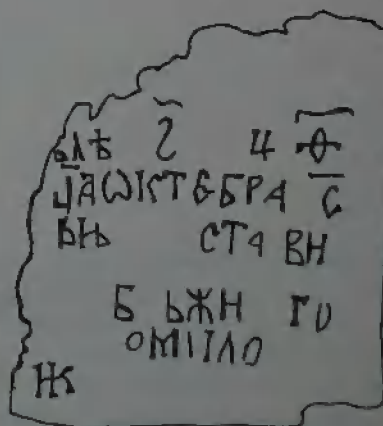 ЬЛѢ Г҃ Ч Ѳ҃
ЦАѠКТЕБРА С҃
ЬНЬ СТА ВН
Б ЬЖН ГО
ОМПЛО
Ж